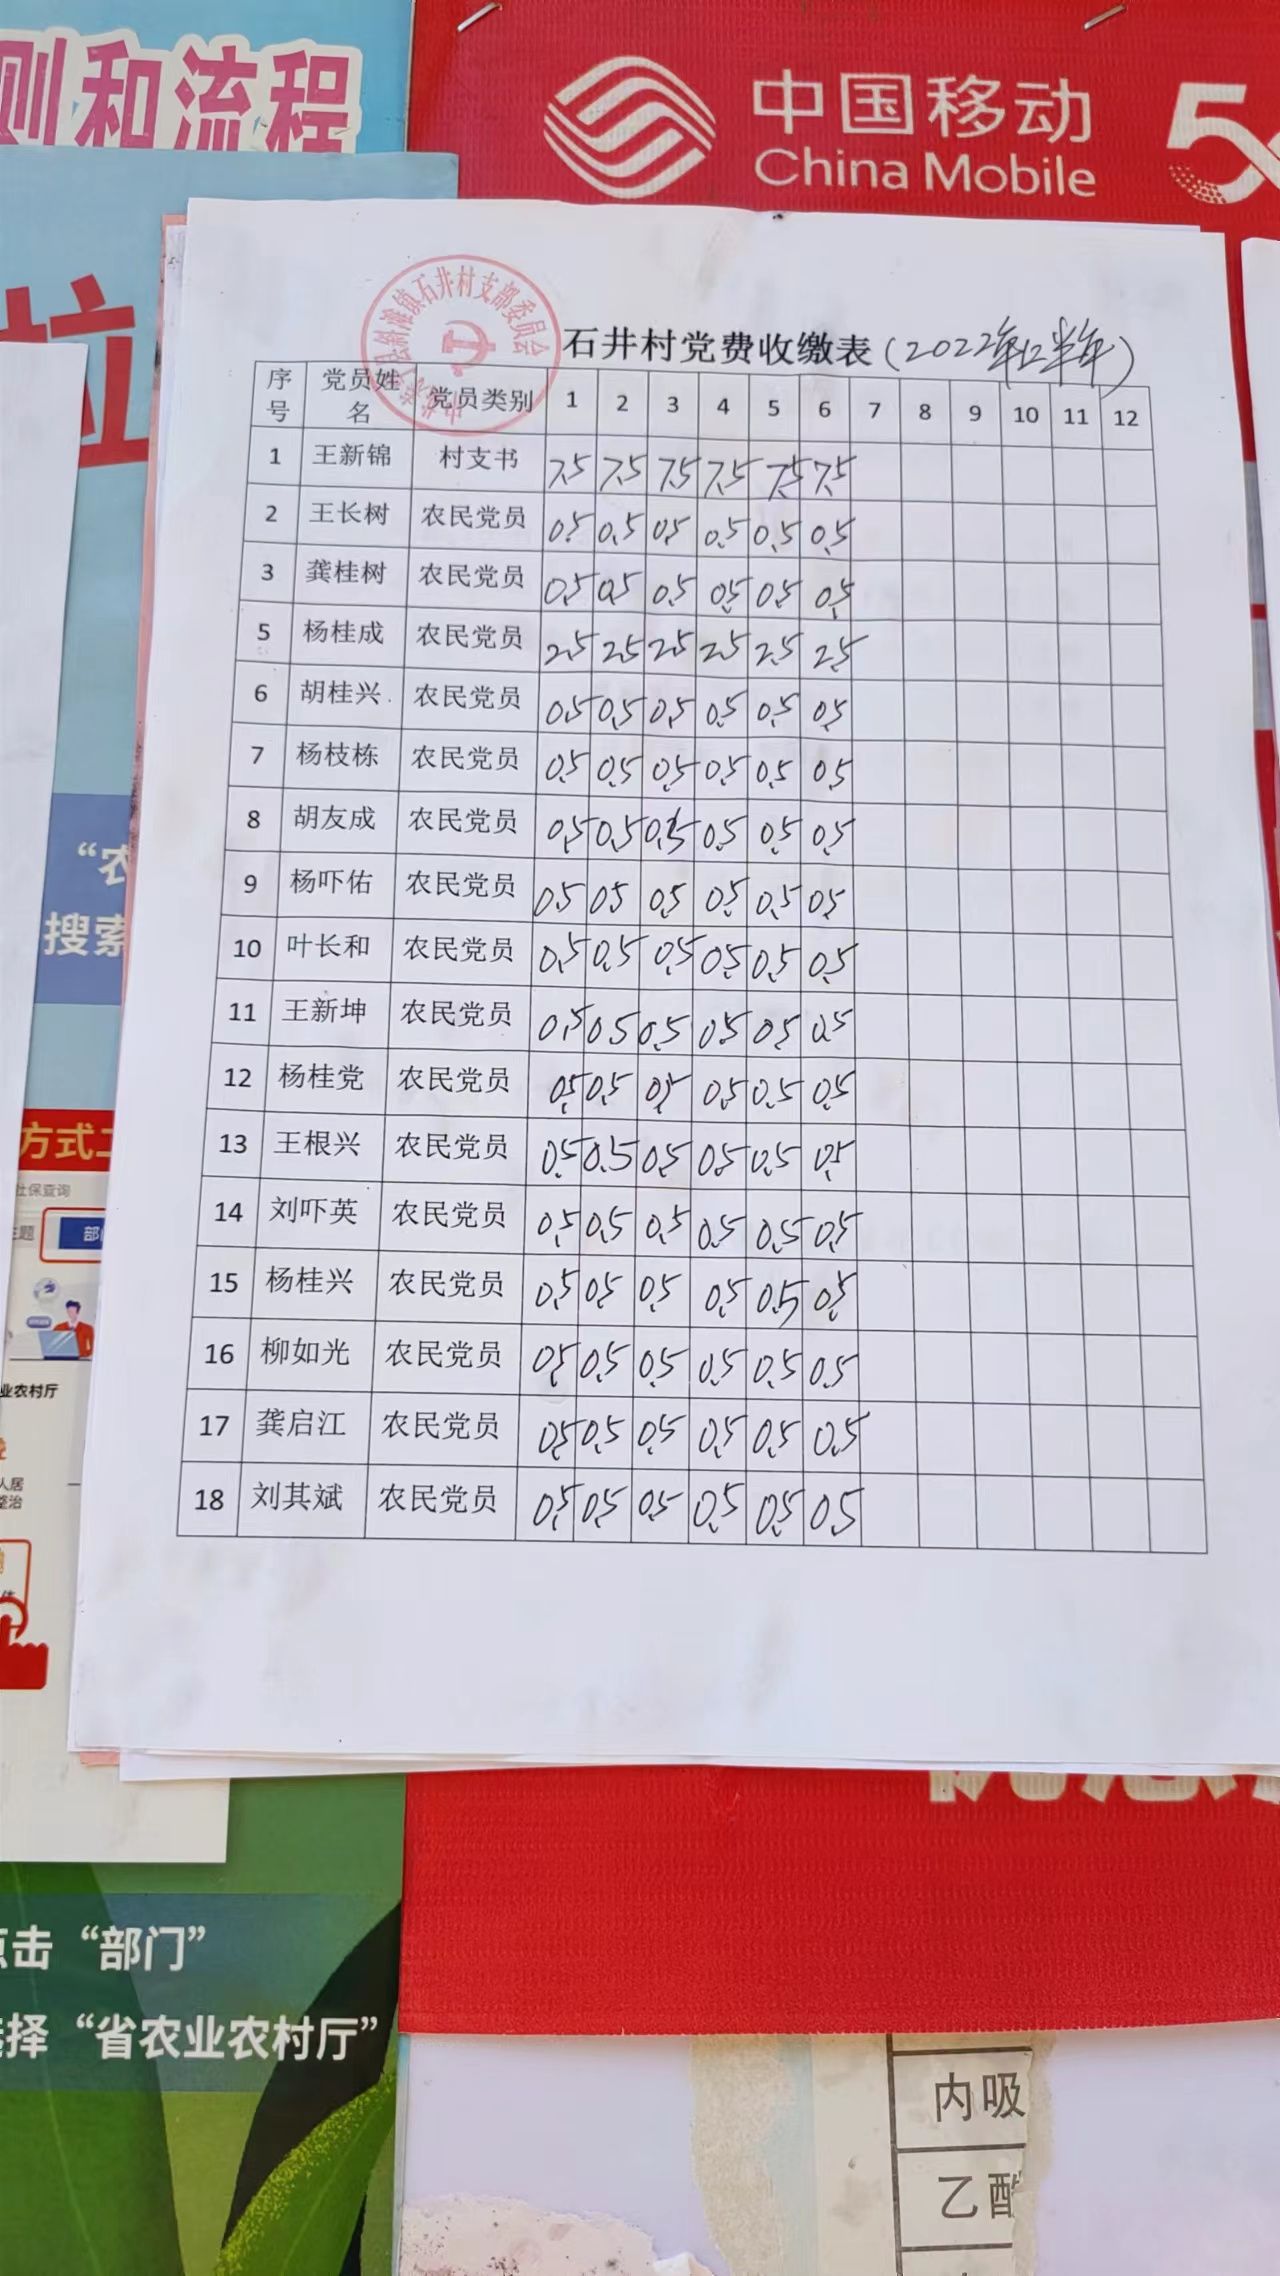 则和流程
中国移动
China Mobile
石井村党费收缴表(2022年上半年)
序号 党员姓名 党员类别 1 2 3 4 5 6 7 8 9 10 11 12
1 王新锦 村支书 7.5 7.5 7.5 7.5 7.5 7.5
2 王长树 农民党员 0.5 0.5 0.5 0.5 0.5 0.5
3 龚桂树 农民党员 0.5 0.5 0.5 0.5 0.5 0.5
5 杨桂成 农民党员 2.5 2.5 2.5 2.5 2.5 2.5
6 胡桂兴 农民党员 0.5 0.5 0.5 0.5 0.5 0.5
7 杨枝栋 农民党员 0.5 0.5 0.5 0.5 0.5 0.5
8 胡友成 农民党员 0.5 0.5 0.5 0.5 0.5 0.5
9 杨吓佑 农民党员 0.5 0.5 0.5 0.5 0.5 0.5
10 叶长和 农民党员 0.5 0.5 0.5 0.5 0.5 0.5
11 王新坤 农民党员 0.5 0.5 0.5 0.5 0.5 0.5
12 杨桂党 农民党员 0.5 0.5 0.5 0.5 0.5 0.5
13 王根兴 农民党员 0.5 0.5 0.5 0.5 0.5 0.5
14 刘吓英 农民党员 0.5 0.5 0.5 0.5 0.5 0.5
15 杨桂兴 农民党员 0.5 0.5 0.5 0.5 0.5 0.5
16 柳如光 农民党员 0.5 0.5 0.5 0.5 0.5 0.5
17 龚启江 农民党员 0.5 0.5 0.5 0.5 0.5 0.5
18 刘其斌 农民党员 0.5 0.5 0.5 0.5 0.5 0.5
“农
搜索
方式二
社保查询
业农村厅
人居
整治
点击“部门”
选择“省农业农村厅”
内吸
乙酰